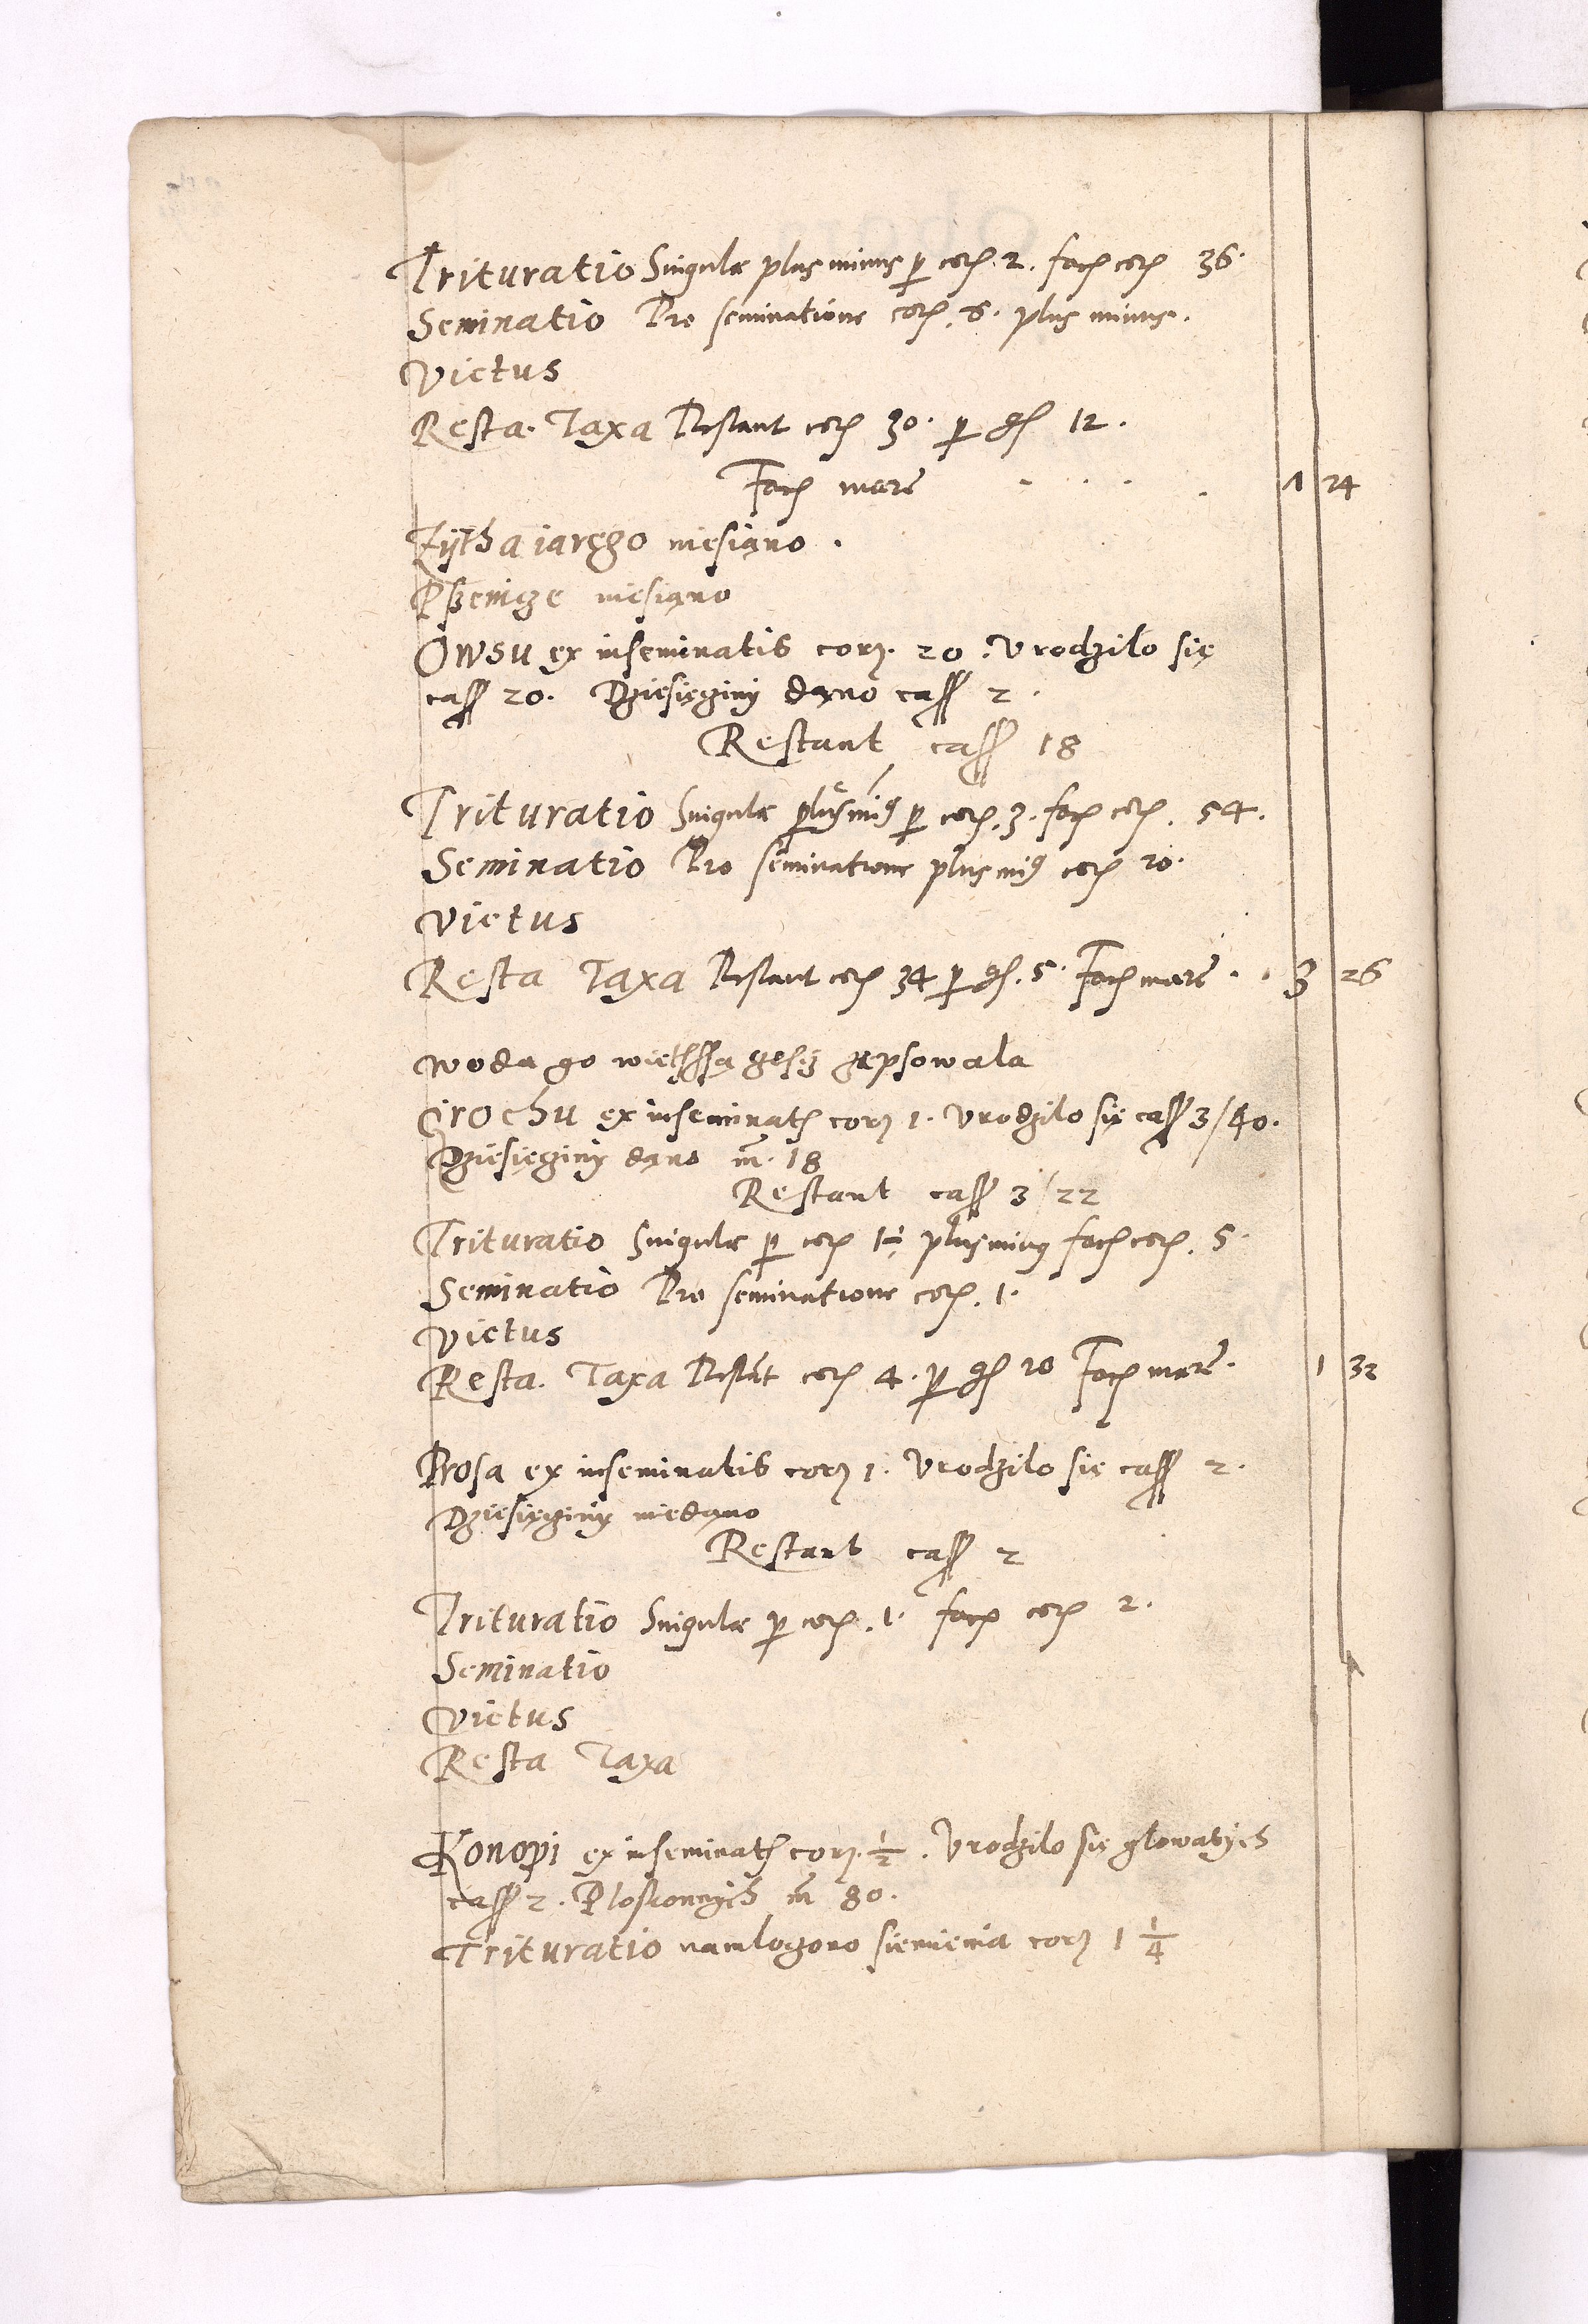 Trituratio Singulae plus minus p cor 2. fac cor 36.
Seminatio Pro seminatione cor. 6. plus minus.
Victus
Resta. Taxa Restant cor 30. p gs 12.
Fac marc . . . . 1 24
Zÿtha iarego niesiąno .
Pßenicze niesiąno
Owsu ex inseminatis cor. 20. Vrodzilo się
cass 20. Dziesięcziny dąno cass 2.
Restant cass 18
Trituratio Singulae plus min9 p cor. 3. fac cor. 54.
Seminatio Pro seminatione plus min9 cor 20.
Victus
Resta Taxa Restant cor 34 p gs. 5. Fac marc . . 3 26
woda go wiethssą czesc zepsowala
Grochu ex inseminat cor 1. Vrodzilo się cass 3/40.
Dziesięciny dąno m. 18
Restant cass 3/22
Trituratio Singulae p cor 1½ plus minus fac cor. 5.
Seminatio Pro seminatione cor. 1.
Victus
Resta. Taxa Restant cor 4. p gs 20 Fac marc. 1 32
Prosa ex inseminatis cor 1. Vrodzilo się cass 2.
Dziesięciny niedąno
Restant cass 2
Trituratio Singulae p cor. 1. fac cor 2.
Seminatio
Victus
Resta Taxa
Konopi ex inseminat cor. ½. Vrodzilo się glowatych
cass 2. Ploskonnych m 80.
Trituratio namloczono siemienia cor 1 ¼